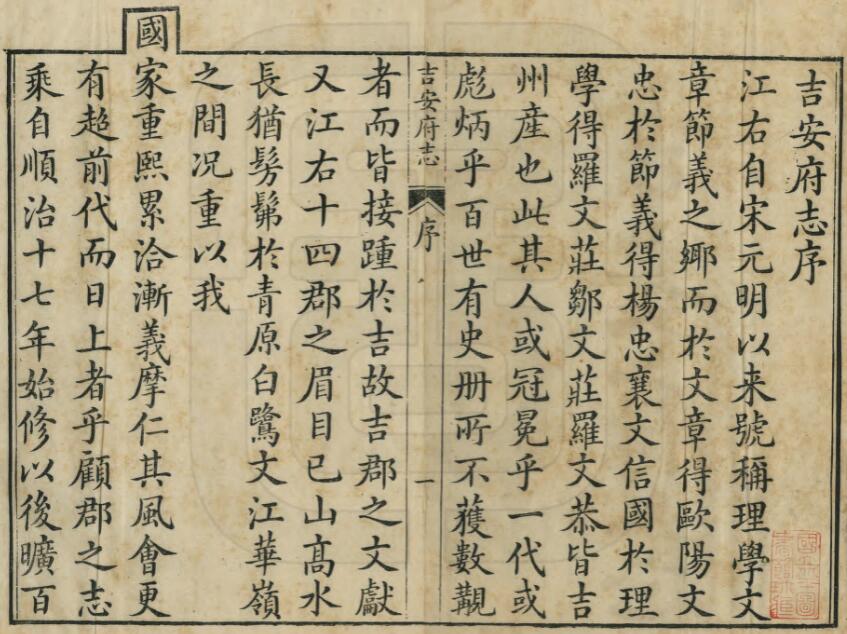 吉安府志序
江右自宋元明以来號稱理學文
章節義之鄉而於文章得歐陽文
忠於節義得楊忠襄文信國於理
學得羅文莊鄒文莊羅文恭皆吉
州產也此其人或冠冕乎一代或
彪炳乎百世有史册所不獲數覯
吉安府志
序
一
者而皆接踵於吉故吉郡之文獻
又江右十四郡之眉目已山高水
長猶髣髴於青原白鷺文江華嶺
之間况重以我
國家重熙累洽漸義摩仁其風會更
有超前代而日上者乎顧郡之志
乘自順治十七年始修以後曠百